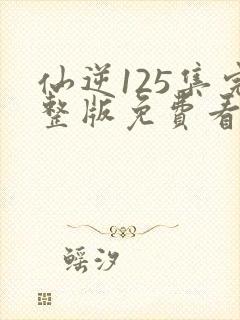 仙逆125集完
整版免費看
鳐汐